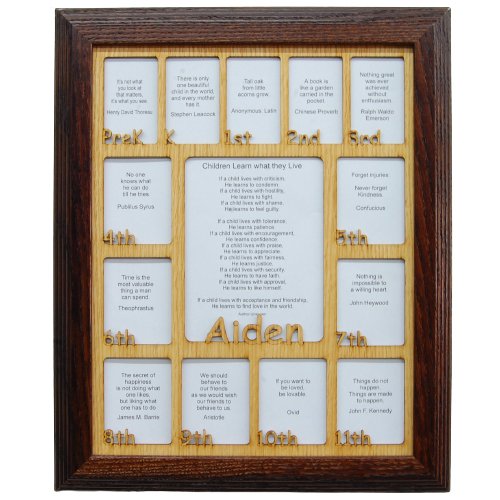 It's not what
you look at
that matters,
it's what you see.
Henry David Thoreau
PreK
There is only
one beautiful
child in the world,
and every mother
has it.
Stephen Leacock
K
Tall oak
from little
acorns grow.
Anonymous. Latin
1st
A book is
like a garden
carried in the
pocket.
Chinese Proverb
2nd
Nothing great
was ever
achieved
without
enthusiasm.
Ralph Waldo
Emerson
3rd
No one
knows what
he can do
till he tries.
Publilius Syrus
4th
Children Learn what they Live
If a child lives with criticism,
He learns to condemn.
If a child lives with hostility,
He learns to fight.
If a child lives with shame,
He learns to feel guilty.
If a child lives with tolerance,
He learns patience
If a child lives with encouragement,
He learns confidence
If a child lives with praise,
He learns to appreciate.
If a child lives with fairness,
He learns justice.
If a child lives with security,
He learns to have faith.
If a child lives with approval,
He learns to like himself.
If a child lives with acceptance and friendship,
He learns to find love in the world.
Author Unknown
Aiden
Forget injuries
Never forget
Kindness.
Confucious
5th
Time is the
most valuable
thing a man
can spend.
Theophrastus
6th
Nothing is
impossible to
a willing heart.
John Heywood
7th
The secret of
happiness
is not doing what
one likes,
but liking what
one has to do
James M. Barrie
8th
We should
behave to
our friends
as we would wish
our friends to
behave to us
Aristotle
9th
If you want to
be loved,
be lovable.
Ovid
10th
Things do not
happen.
Things are made
to happen.
John F. Kennedy
11th